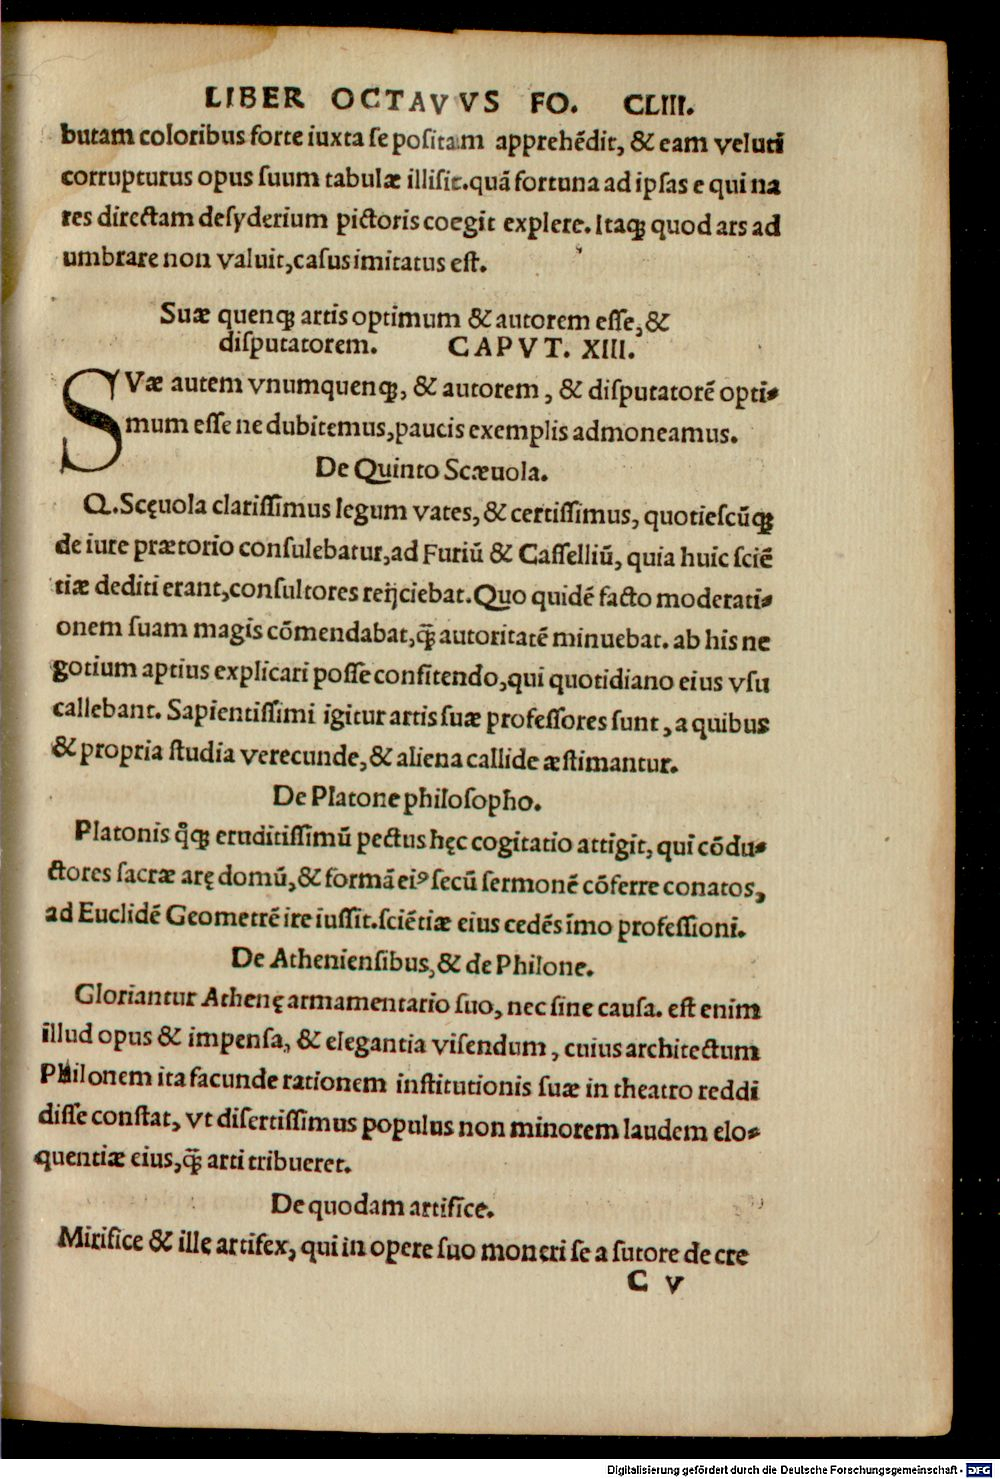 LIBER OCTAVVS FO. CLIII.
butam coloribus forte iuxta se positam apprehēdit, & eam veluti
corrupturus opus suum tabulæ illisit.quā fortuna ad ipsas e qui na
res directam desyderium pictoris coegit explere. Itaqꝫ quod ars ad
umbrare non valuit,casus imitatus est.
Suæ quenqꝫ artis optimum & autorem esse, &
disputatorem. CAPVT. XIII.
SVæ autem vnumquenqꝫ, & autorem, & disputatorē opti⸗
mum esse ne dubitemus,paucis exemplis admoneamus.
De Quinto Scæuola.
Q.Scęuola clarissimus legum vates, & certissimus, quotiescūqꝫ
de iure prætorio consulebatur,ad Furiū & Casselliū, quia huic sciē
tiæ dediti erant,consultores reijciebat.Quo quidē facto moderati⸗
onem suam magis cōmendabat,q̄ꝫ autoritatē minuebat. ab his ne
gotium aptius explicari posse confitendo,qui quotidiano eius vsu
callebant. Sapientissimi igitur artis suæ professores sunt, a quibus
& propria studia verecunde, & aliena callide æstimantur.
De Platone philosopho.
Platonis qͦqꝫ eruditissimū pectus hęc cogitatio attigit, qui cōdu⸗
ctores sacræ arę domū, & formā eiꝰ secū sermonē cōferre conatos,
ad Euclidē Geometrē ire iussit.sciētiæ eius cedēs īmo professioni.
De Atheniensibus, & de Philone.
Gloriantur Athenę armamentario suo, nec sine causa. est enim
illud opus & impensa, & elegantia visendum, cuius architectum
Philonem ita facunde rationem institutionis suæ in theatro reddi
disse constat, vt disertissimus populus non minorem laudem elo⸗
quentiæ eius,q̄ꝫ arti tribueret.
De quodam artifice.
Mirifice & ille artifex, qui in opere suo moneri se a sutore de cre
C v
Digitalisierung gefördert durch die Deutsche Forschungsgemeinschaft - DFG